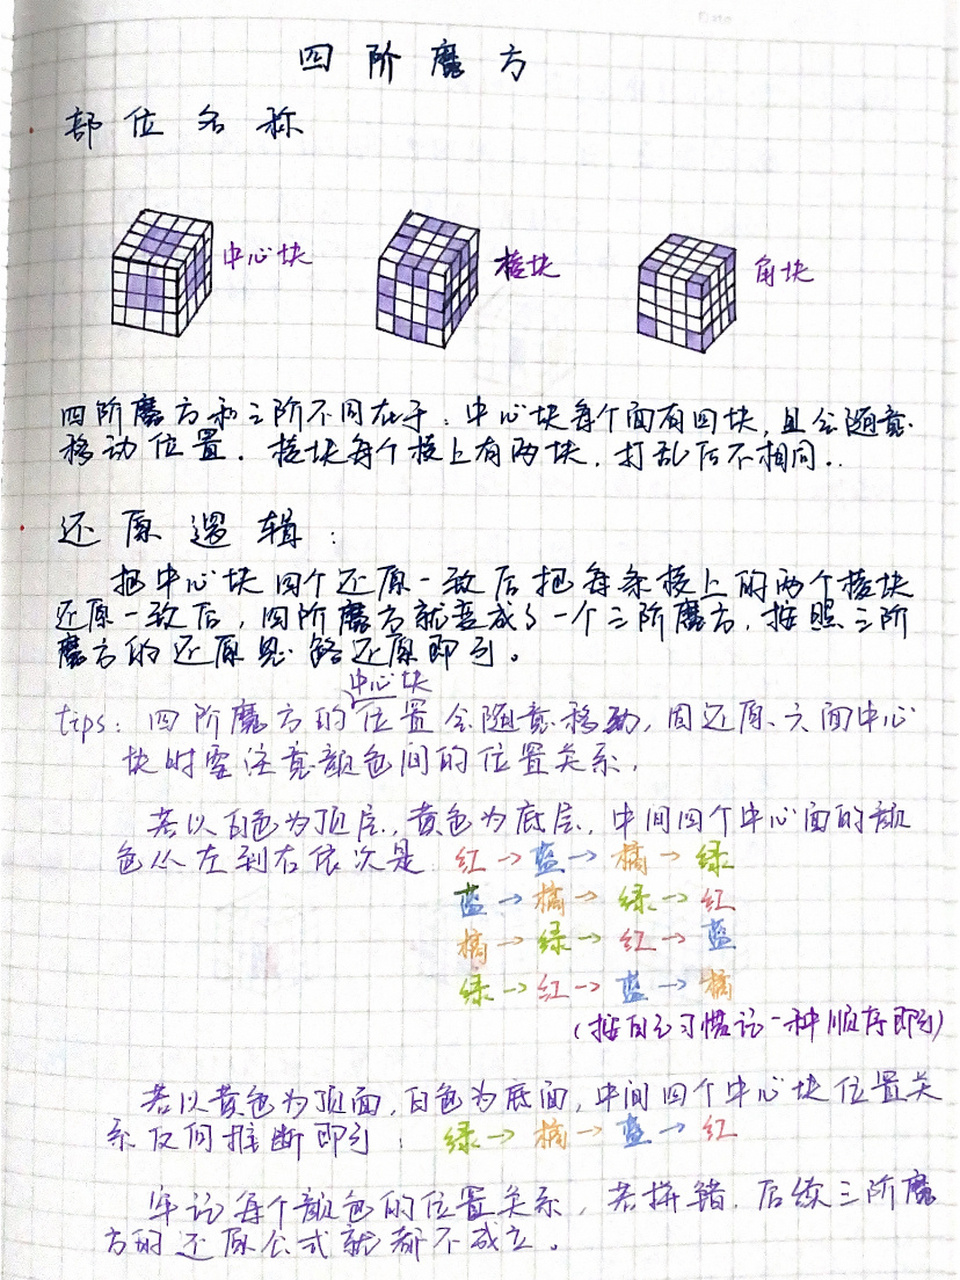 Date
四阶魔方
部位名称
中心块
棱块
角块
四阶魔方和三阶不同在于：中心块每个面有四块，且会随意
移动位置．棱块每个棱上有两块．打乱后不相同..
还原逻辑：
把中心块四个还原一致后把每条棱上的两个棱块
还原一致后，四阶魔方就变成了一个三阶魔方．按照三阶
魔方的还原思路还原即可。
中心块
tips：四阶魔方的位置会随意移动，因还原六面中心
块时需注意颜色间的位置关系．
若以白色为顶层，黄色为底层，中间四个中心面的颜
色从左到右依次是 红→蓝→橘→绿
蓝→橘→绿→红
橘→绿→红→蓝
绿→红→蓝→橘
（按自己习惯记一种顺序即可）
若以黄色为顶面，白色为底面，中间四个中心块位置关
系反向推断即可：绿→橘→蓝→红
牢记每个颜色的位置关系，若拼错．后续三阶魔
方的还原公式就都不成立。